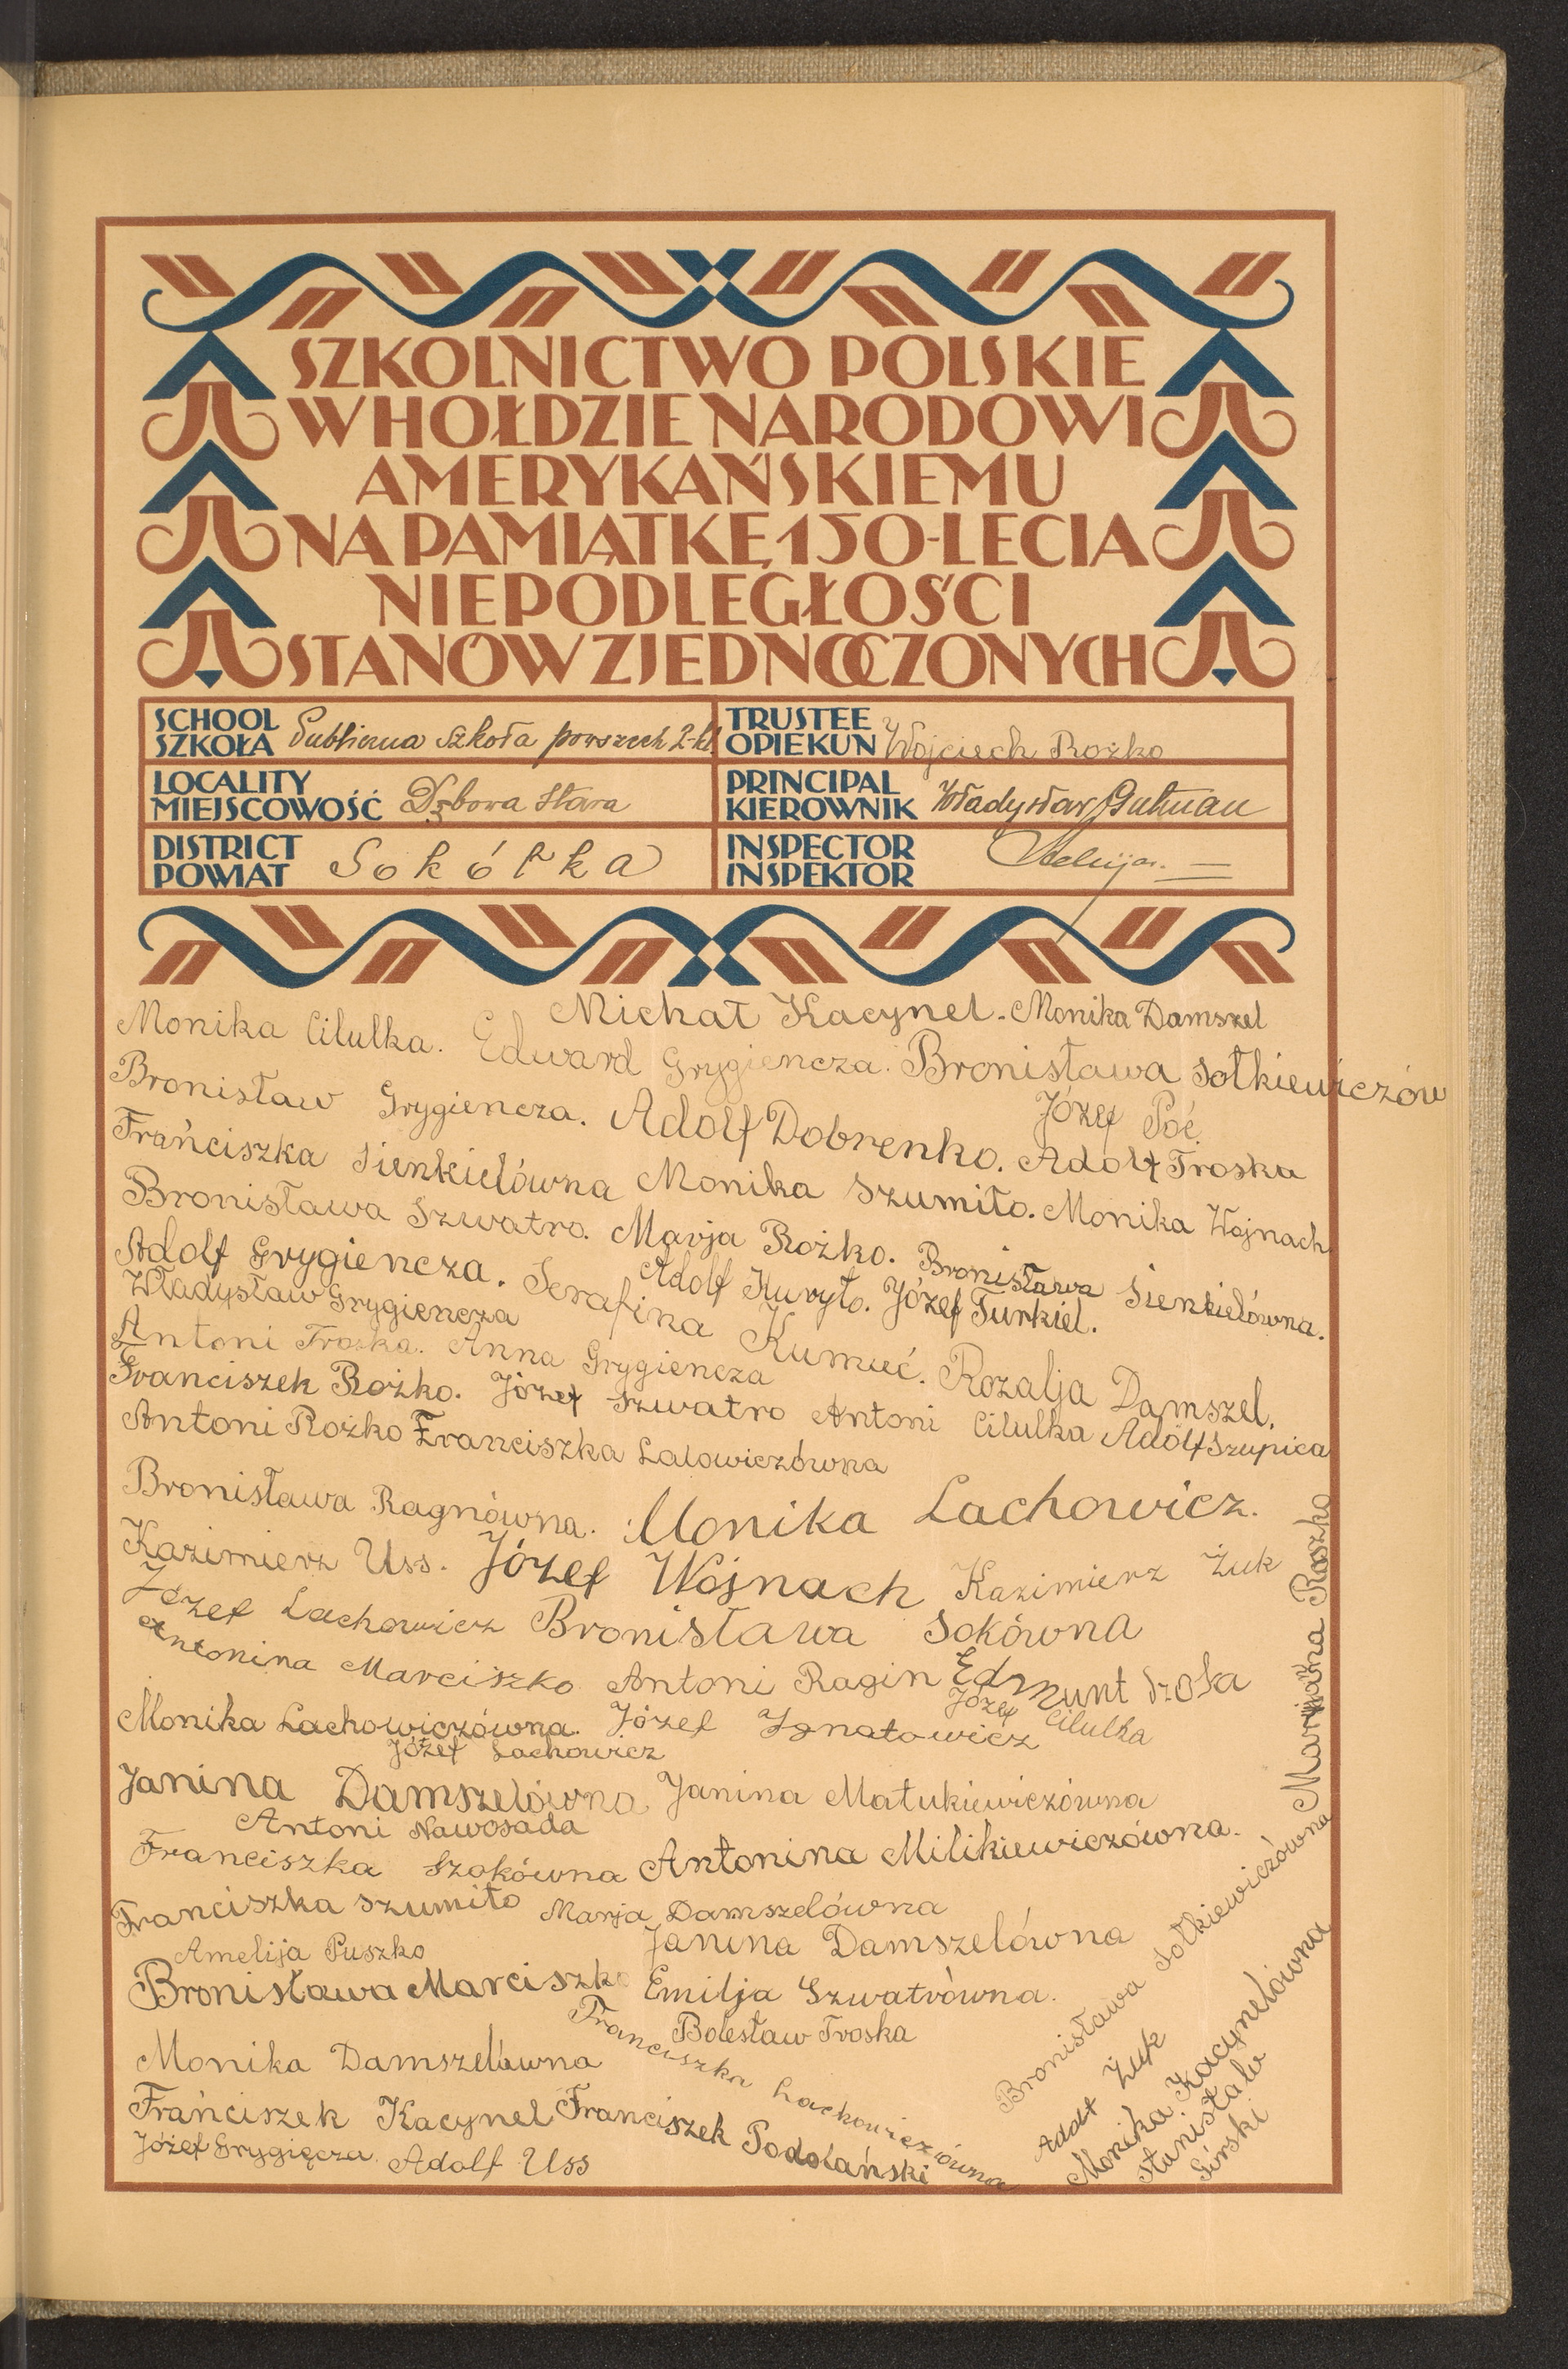 SZKOLNICTWO POLSKIE
W HOŁDZIE NARODOWI
AMERYKAŃSKIEMU
NA PAMIĄTKĘ 150-LECIA
NIEPODLEGŁOŚCI
STANÓW ZJEDNOCZONYCH
SCHOOL
SZKOŁA Publiczna Szkoła powszech 2-kl
TRUSTEE
OPIEKUN Wojciech Rożko
LOCALITY
MIEJSCOWOŚĆ Dębowa Stara
PRINCIPAL
KIEROWNIK Władysław Gutman
DISTRICT
POWIAT Sokółka
INSPECTOR
INSPEKTOR
Michał Kacynel. Monika Damszel
Monika Cilulka. Edward Grygiencza. Bronisława Sołkiewiczów
Bronisław Grygiencza. Adolf Dobrenko. Józef Poć
Adolf Troska
Frańciszka Sienkielówna Monika Szumiło. Monika Wojnach
Bronisława Szwatro. Marja Rożko. Bronisława Sienkielówna.
Adolf Grygiencza. Serafina Kumieć. Rozalja Damszel.
Adolf Kuryło. Józef Turkiel.
Władysław Grygiencza
Antoni Troska. Anna Grygiencza
Franciszek Rożko. Józef Szwatro Antoni Cilulka Adolf Szupica
Antoni Rożko Franciszka Lalowiczówna
Bronisława Ragnówna. Monika Lachowicz.
Kazimierz Uss. Józef Wojnach Kazimierz Żuk
Józef Lachowicz Bronisława Sokówna
Antonina Marciszko Antoni Ragin Edmunt Szoka
Monika Lachowiczówna. Józef Ignatowicz
Józef Cilulka
Józef Lachowicz
Janina Damszelówna Janina Matukiewiczówna
Antoni Nawosada
Franciszka Szokówna Antonina Milikiewiczówna.
Franciszka Szumiło Marja Damszelówna
Amelija Puszko Janina Damszelówna
Bronisława Marciszko Emilja Szwatrówna.
Bolesław Troska
Franciszka Lachowiczówna
Monika Damszelówna
Frańciszek Kacynel Franciszek Podolański
Józef Grygięcza Adolf Uss
Marjana Roszko
Bronisława Sołkiewiczówna
Adolf Żuk
Monika Kacynelówna
Stanisław
Górski